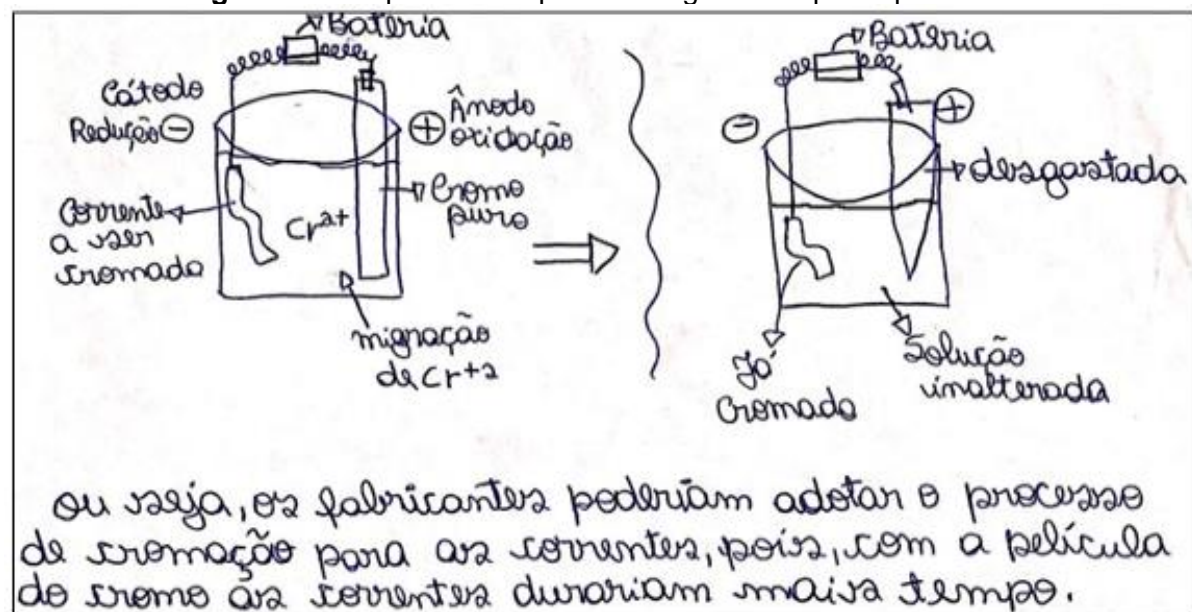 Bateria
Cátodo
Redução ⊖
⊕ Ânodo
oxidação
Corrente
a ser
cromada
Cr²⁺
Cromo
puro
migração
de Cr+2
Bateria
⊖
⊕
desgastada
Já
Cromada
Solução
inalterada
ou seja, os fabricantes poderiam adotar o processo
de cromação para as correntes, pois, com a película
do cromo as correntes durariam mais tempo.